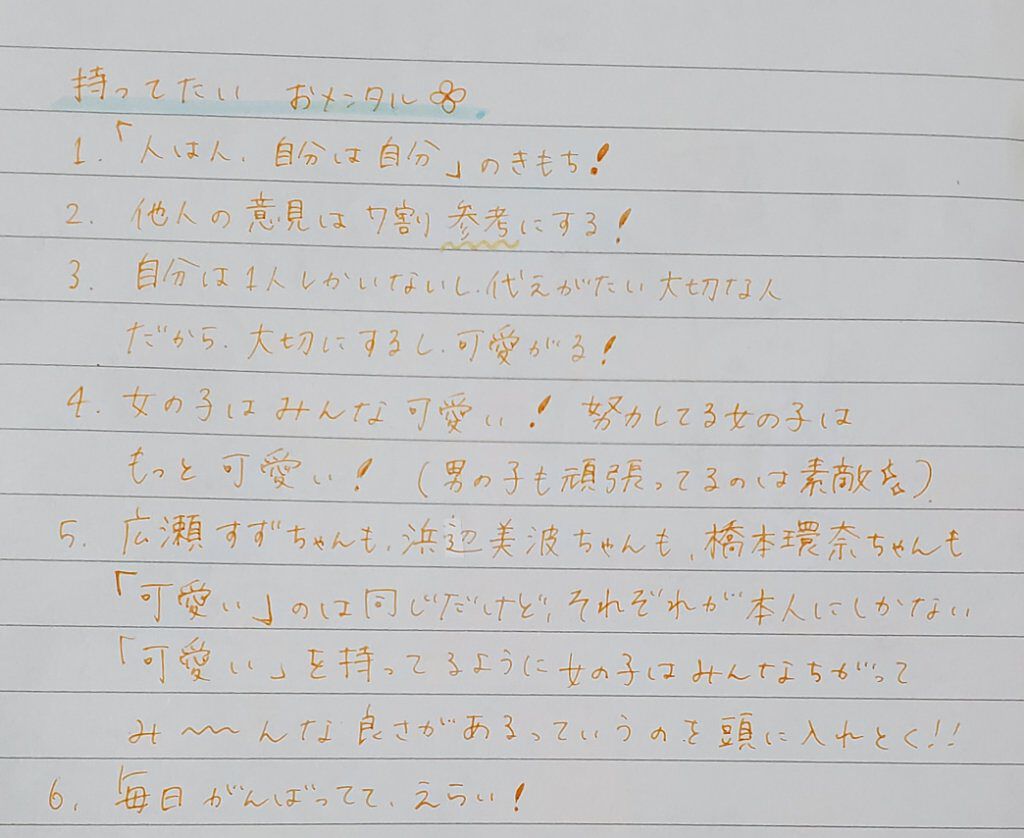 持ってたい おメンタル
1.「人は人、自分は自分」のきもち!
2. 他人の意見は7割参考にする!
3. 自分は1人しかいないし、代えがたい大切な人
だから、大切にするし、可愛がる!
4. 女の子はみんな可愛い! 努力してる女の子は
もっと可愛い! (男の子も頑張ってるのは素敵☆)
5. 広瀬すずちゃんも、浜辺美波ちゃんも、橋本環奈ちゃんも
「可愛い」のは同じだけど、それぞれが本人にしかない
「可愛い」を持ってるように女の子はみんなちがって
み〜〜んな良さがあるっていうのを頭に入れとく!!
6. 毎日がんばってて、えらい!